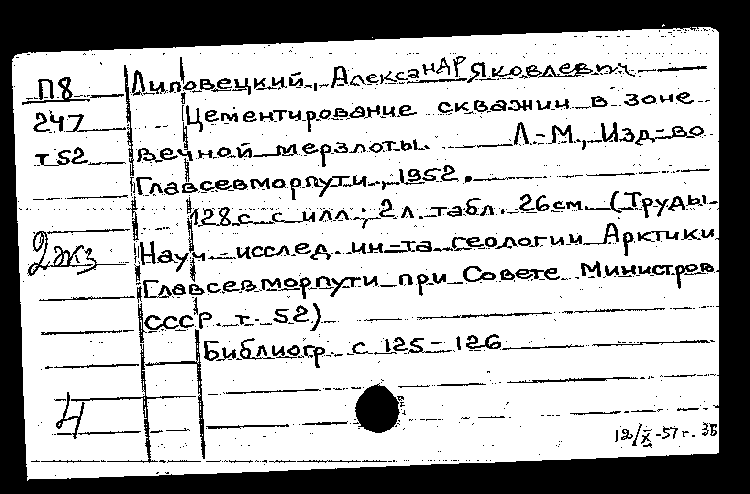 П8 Липовецкий, Александр Яковлевич
247 Цементирование скважин в зоне
т52 вечной мерзлоты. Л.-М., Изд-во
Главсевморпути, 1952.
128 с. с илл.; 2 л. табл. 26см. (Труды
2 экз Науч. исслед. ин-та геологии Арктики
Главсевморпути при Совете Министров
СССР. т. 52)
Библиогр. с 125-126
4
12/X-57 г.